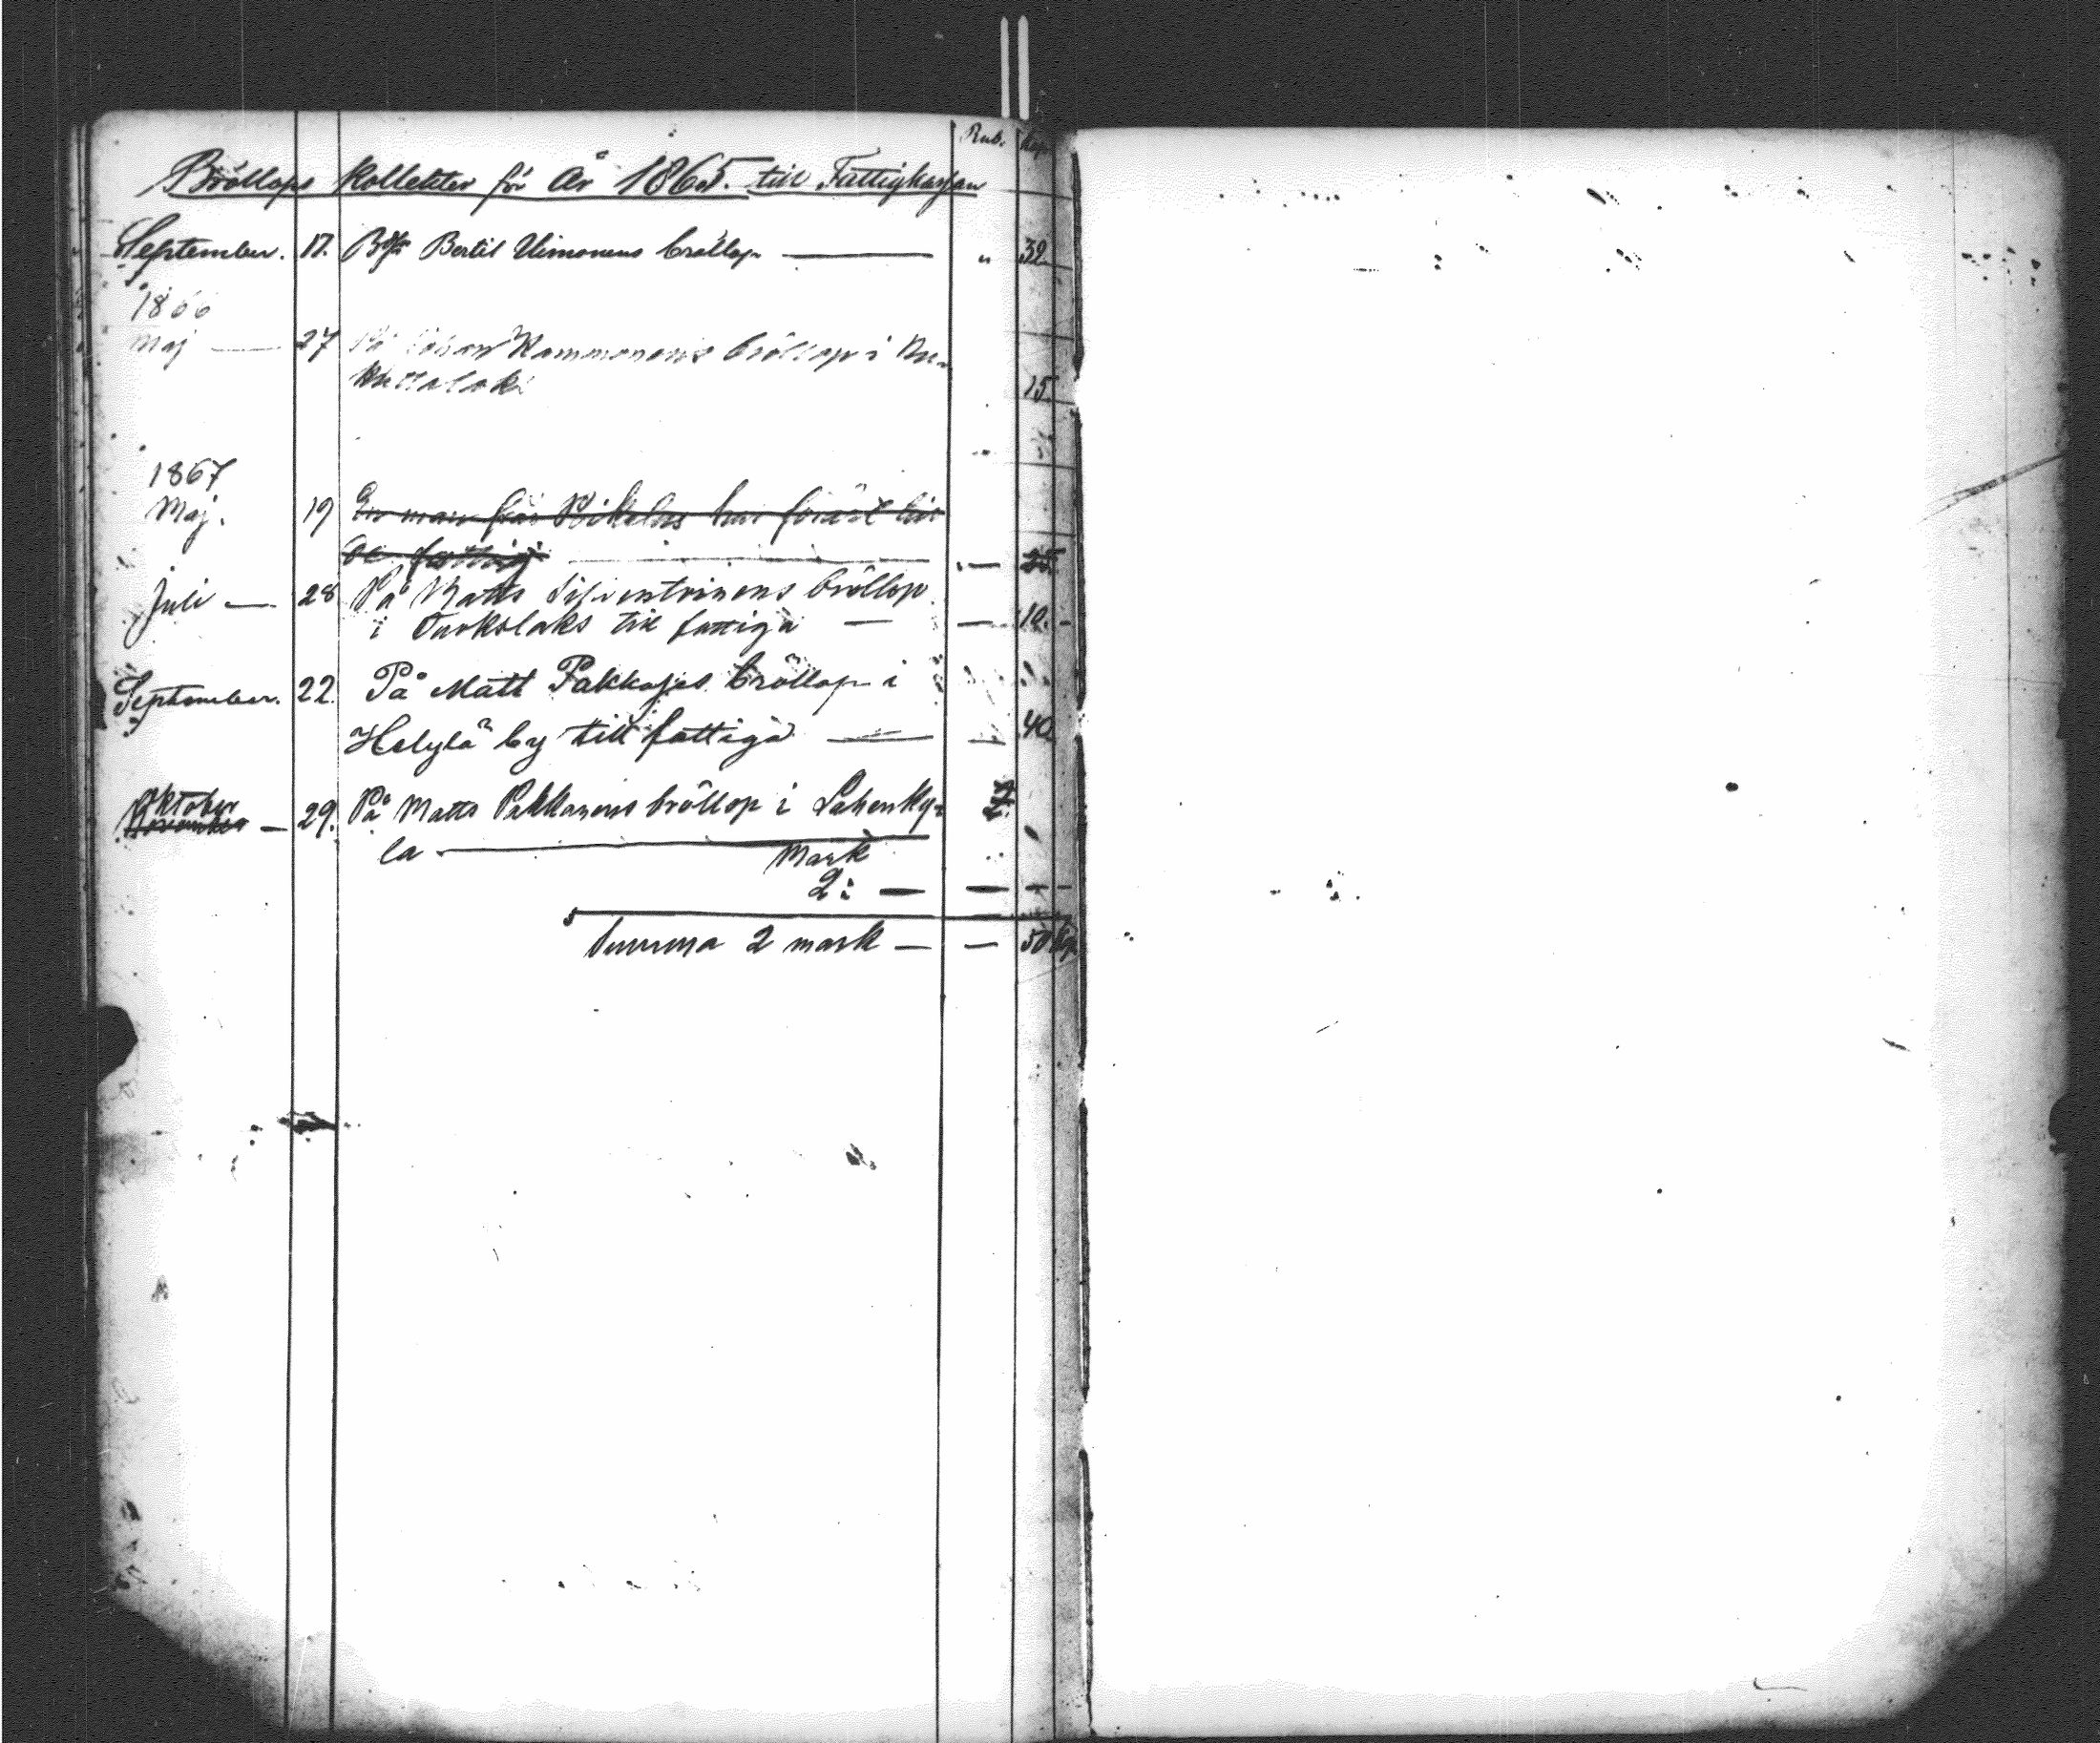 Rub. Kop.
Bröllops Kollekter för År 1865. till Fattigkassan
September. 17. Bertil Uimonens bröllop — " 32
1866
Maj — 27 På Johan Kammonens bröllop i
15
1867
Maj. 19 En man från har till
de fattiga — 25
Juli — 28 På Matts Silventoinens bröllop
i till fattiga — — 10.
September. 22. På Matt Pakkajas bröllop i
Helylä by till fattiga — — 40
Oktober
November — 29. På Matts Pakkanens bröllop i Lahenky-
la — Mark
2: — — —
Summa 2 mark — — 50 Kop.